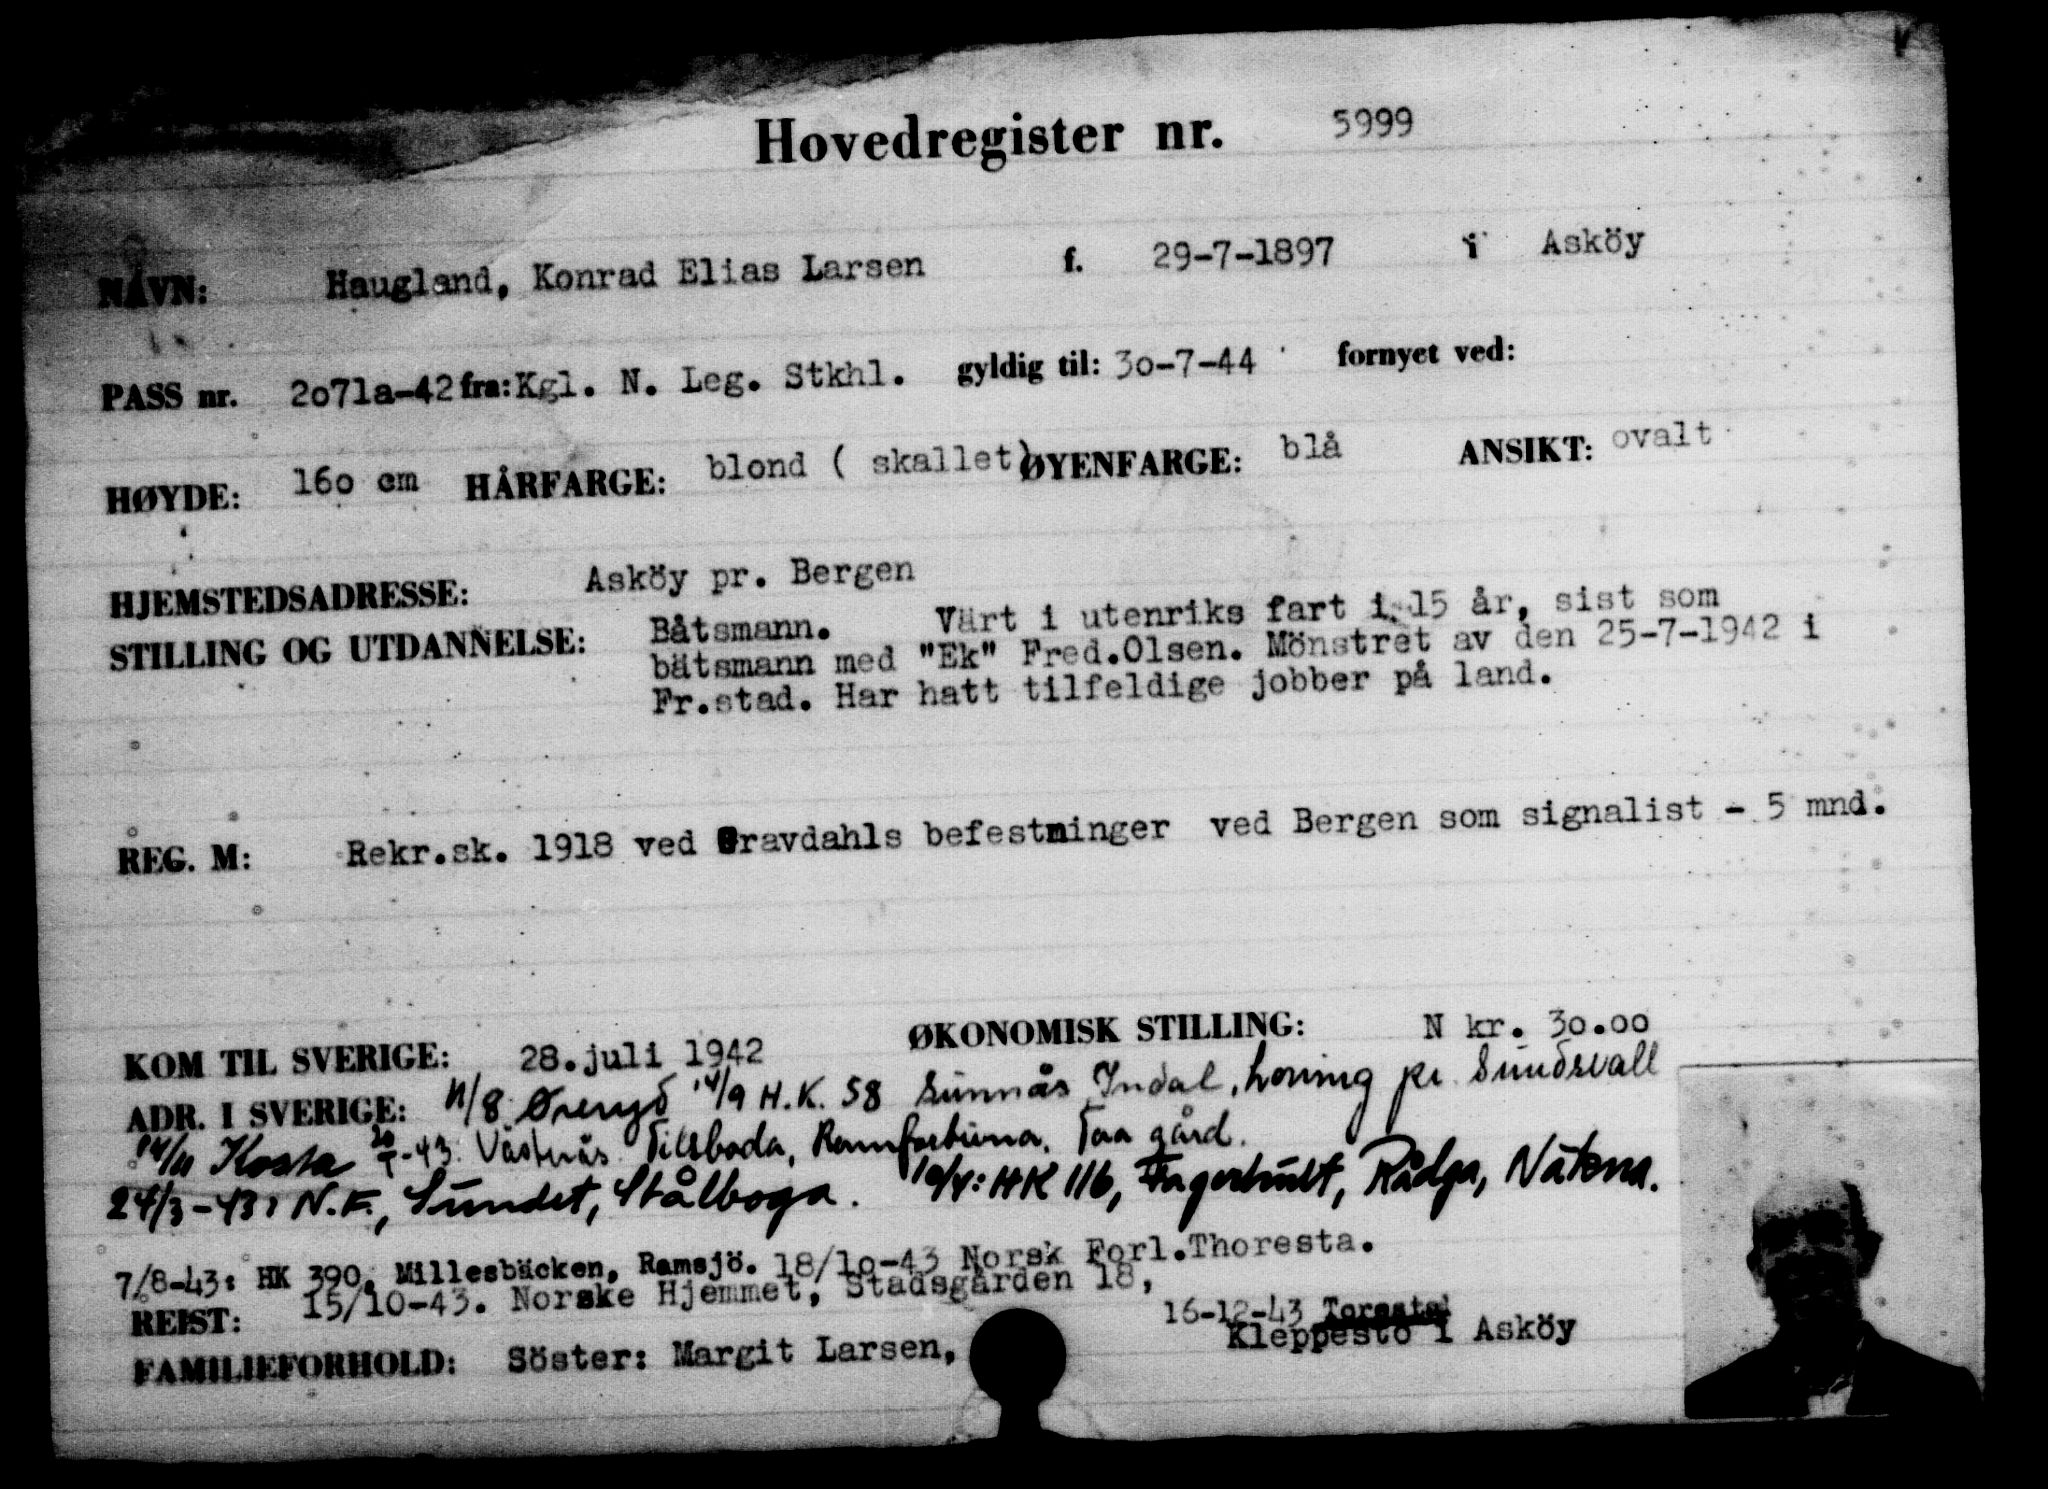 Hovedregister nr. 5999
NAVN: Haugland, Konrad Elias Larsen f. 29-7-1897 i Asköy
PASS nr. 2o71a-42 fra: Kgl. N. Leg. Stkhl. gyldig til: 3o-7-44 fornyet ved:
HØYDE: 16o cm HÅRFARGE: blond ( skallet) ØYENFARGE: blå ANSIKT: ovalt
HJEMSTEDSADRESSE: Asköy pr. Bergen
STILLING OG UTDANNELSE: Båtsmann. Värt i utenriks fart i 15 år, sist som
båtsmann med "Ek" Fred.Olsen. Mönstret av den 25-7-1942 i
Fr.stad. Har hatt tilfeldige jobber på land.
REG. M: Rekr.sk. 1918 ved Gravdahls befestninger ved Bergen som signalist - 5 mnd.
KOM TIL SVERIGE: 28.juli 1942 ØKONOMISK STILLING: N kr. 3o.oo
ADR. I SVERIGE: 11/8 Øreryd 14/9 H.K. 58 Sunnås Indal, pr. Sundsvall
14/11 Kosta 20/1-43: Västerås Tilsboda, Ramfortuna. Taa gård.
24/3-43: N.F., Sundet, Stålboga. 10/4: HK 116, Fagerhult, Nätena.
7/8-43: HK 390, Millesbäcken, Ramsjö. 18/10-43 Norsk Forl.Thoresta.
REIST: 15/10-43. Norske Hjemmet, Stadsgården 18,
16-12-43 Toresta
FAMILIEFORHOLD: Söster: Margit Larsen, Kleppestö i Asköy